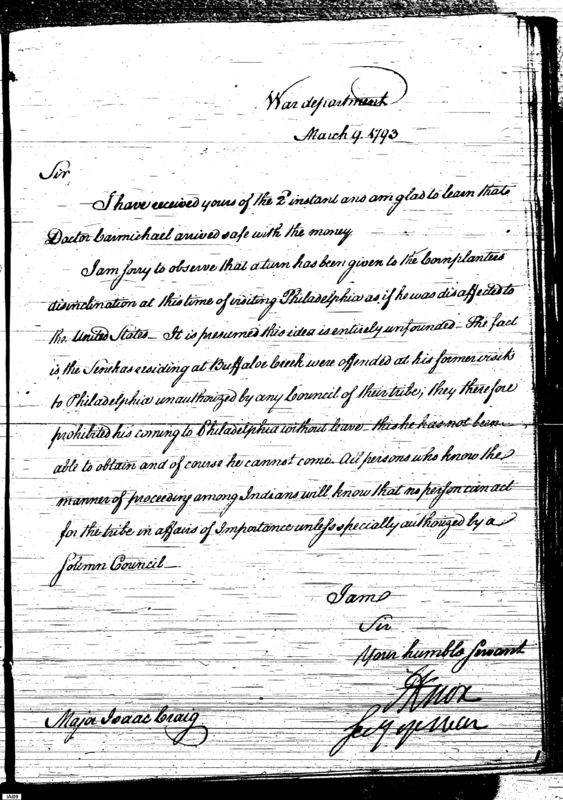 War department
March 9. 1793
Sir
I have received yours of the 2d instant and am glad to learn that
Doctor Carmichael arrived safe with the money.
I am sorry to observe that a turn has been given to the Cornplanters
disinclination at this time of visiting Philadelphia as if he was disaffected to
the United States — It is presumed this idea is entirely unfounded — The fact
is the Senekas residing at Buffaloe Creek were offended at his former visit
to Philadelphia unauthorized by any Council of their tribe; they therefore
prohibited his coming to Philadelphia without leave — this he has not been
able to obtain and of course he cannot come. All persons who know the
manner of proceeding among Indians will know that no person can act
for the tribe in affairs of Importance unless specially authorized by a
Solemn Council —
I am
Sir
Your humble Servant
H Knox
Secy of War
Major Isaac Craig